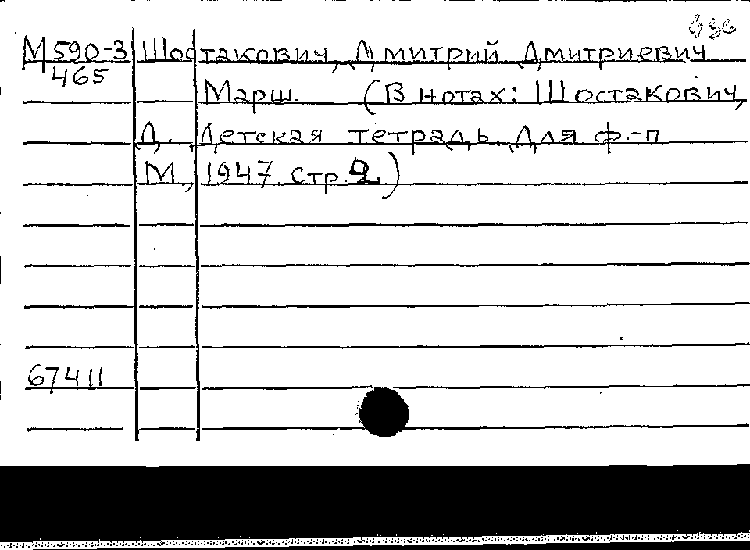 М590-3 Шостакович, Дмитрий Дмитриевич
465
Марш. (В нотах: Шостакович,
Д. Детская тетрадь для ф.-п
М., 1947. стр. 2)
67411